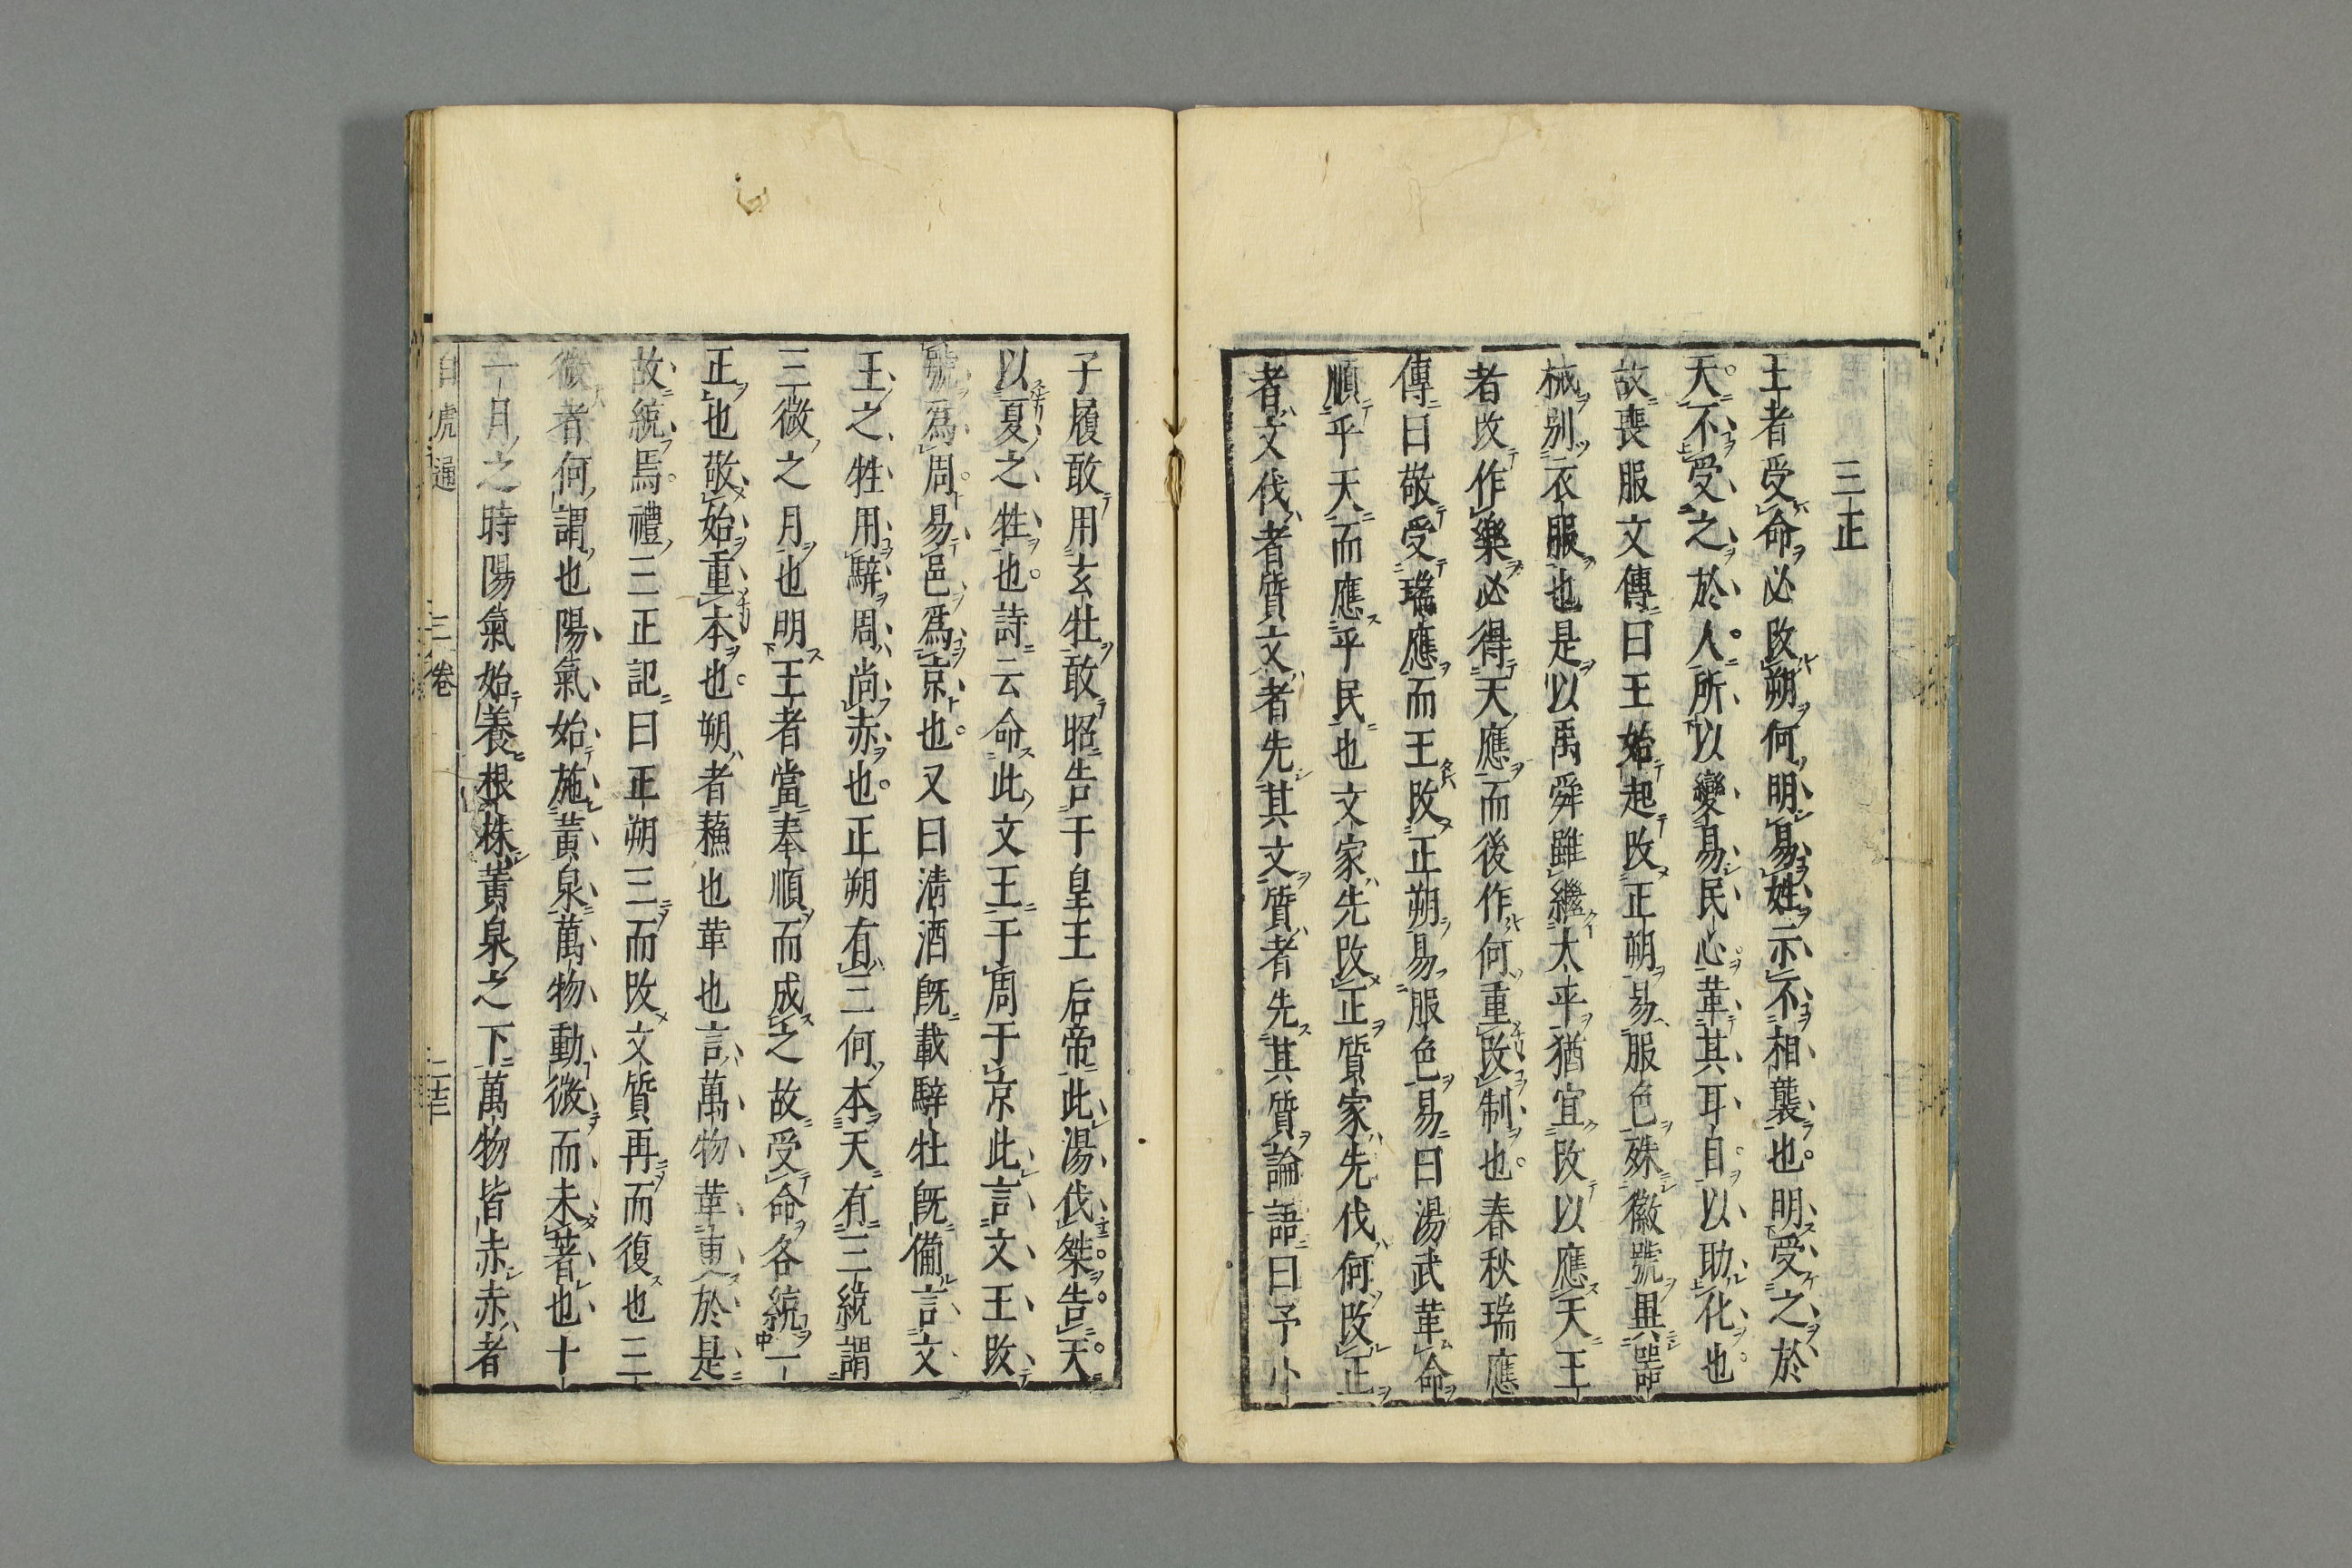 三正
王者受命必改朔何明易姓示不相襲也明受之於
天不受之於人所以變易民心革其耳目以助化也
故喪服文傳曰王始起改正朔易服色殊徽號異器
械别衣服也是以禹舜雖繼太平猶宜改以應天王
者改作樂必得天應而後作何重改制也春秋瑞應
傳曰敬受瑞應而王改正朔易服色易曰湯武革命
順乎天而應乎民也文家先改正質家先伐何改正
者文伐者質文者先其文質者先其質論語曰予小
子履敢用玄牡敢昭告于皇王后帝此湯伐桀告天
以夏之牲也詩云命此文王于周于京此言文王改
號爲周易邑爲京也又曰清酒既載騂牡既備言文
王之牲用騂周尚赤也正朔有三何本天有三統謂
三微之月也明王者當奉順而成之故受命各統一
正也敬始重本也朔者蘓也革也言萬物革更於是
故統焉禮三正記曰正朔三而改文質再而復也三
微者何謂也陽氣始施黃泉萬物動微而未著也十
一月之時陽氣始養根株黃泉之下萬物皆赤赤者
白虎通 三卷 二十三